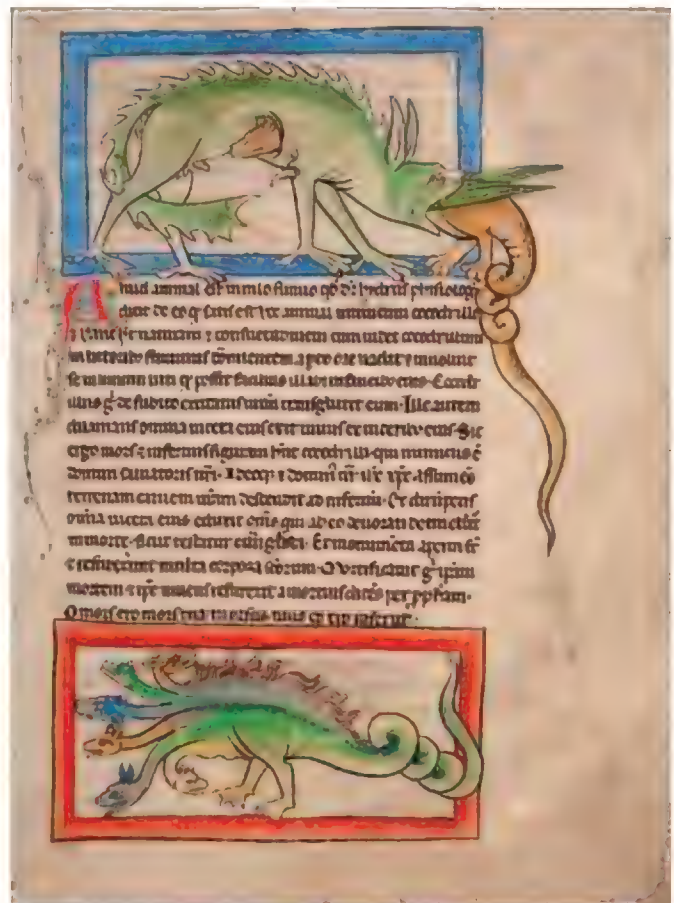 Aliud animal est in nilo flumine qd dr hydrus phisiologus
dicit de eo q satis est hoc animal inimicum cocodrillo
cum videt cocodrillum
in litore fluminis dormientem aperto ore vadit et involvit
se in limum luti q possit facilius illabi in faucibus eius. Cocodr
illus g de subito eum transglutit eum. Ille autem
omnia viscera eius exit vivus ex visceribus eius. Sic
ergo mors et infernus figuram hnt cocodrilli qui inimicus e
domini salvatoris nri. Ideoq et dominus nr ihc xpc assumens
terrenam carnem nram descendit ad infernum. Et dirumpens
omnia viscera eius eduxit eos qui ab eo devorati
in morte. Sicut testatur evangelista. Et monumenta aperta st
et resurrexerunt multa corpora scorum. Mortificavit g ipsam
mortem et ipse vivens resurrexit a mortuis dicens per pphetam.
O mors ero mors tua morsus tuus inferne.